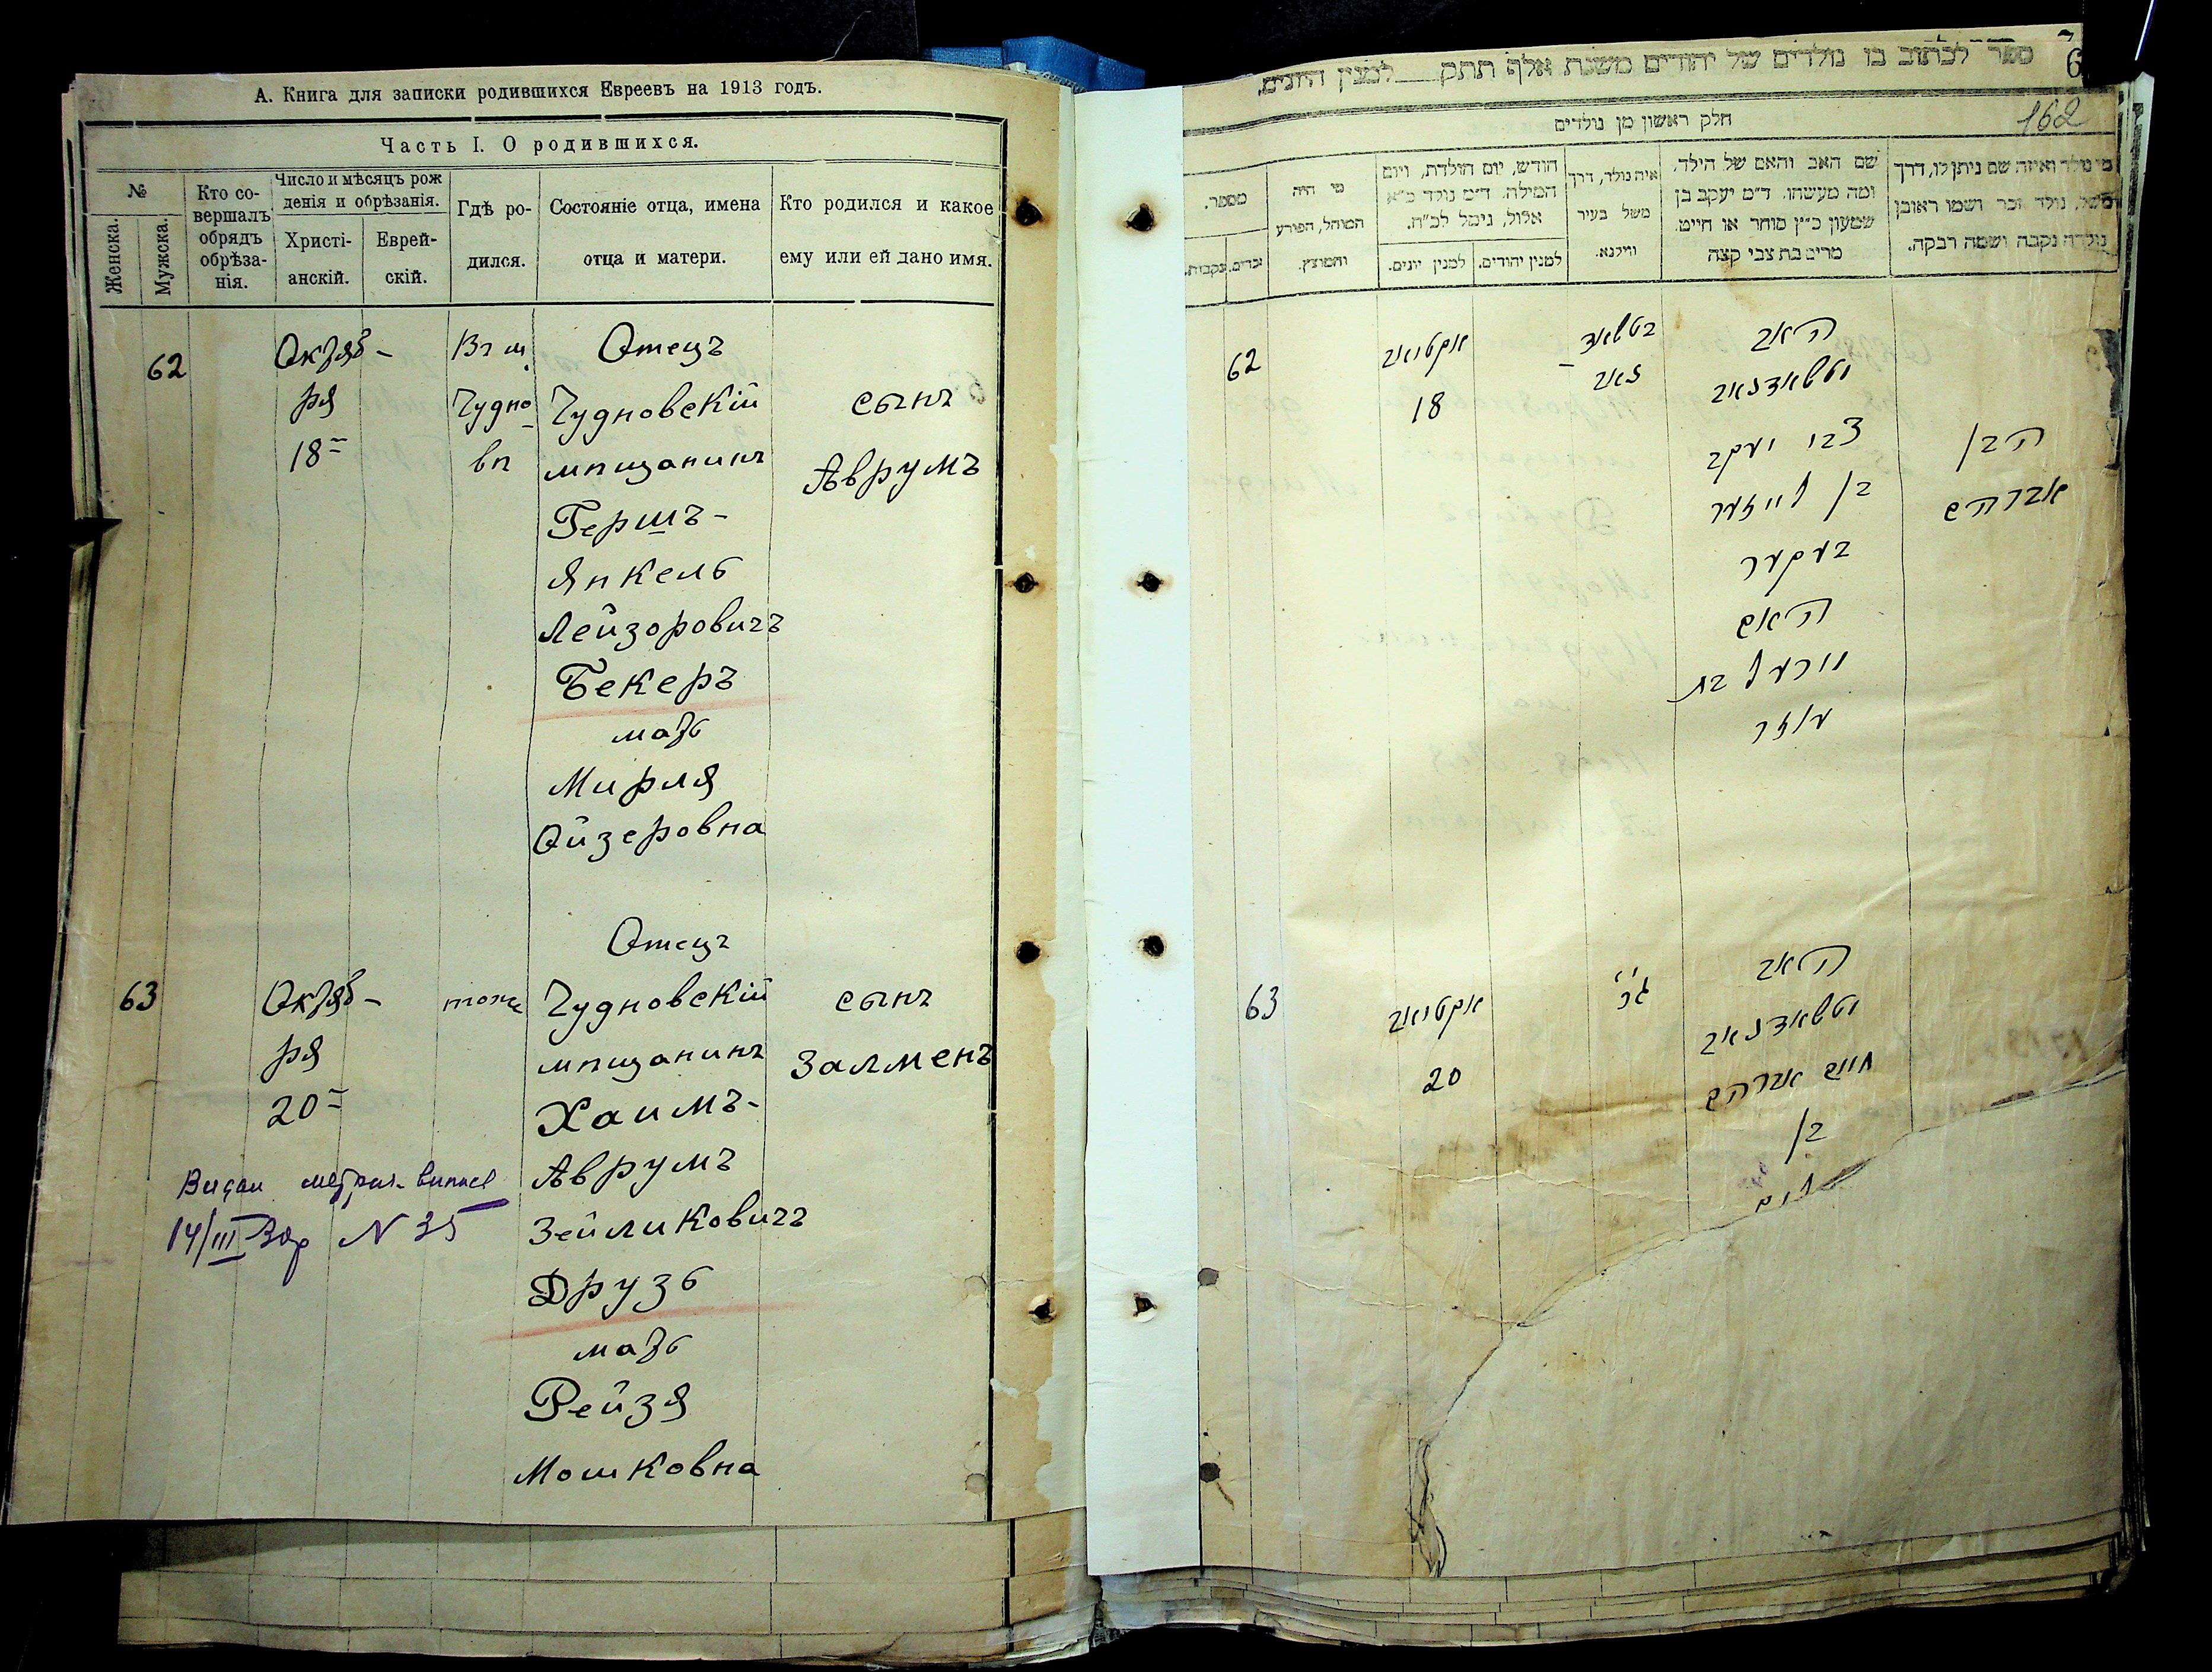 А. Книга для записки родившихся Евреевъ на 1913 годъ.
Часть I. О родившихся.
№
Женска.
Мужска.
Кто со-
вершалъ
обрядъ
обрѣза-
нія.
Число и мѣсяцъ рож
денія и обрѣзанія.
Христі-
анскій.
Еврей-
скій.
Гдѣ ро-
дился.
Состояніе отца, имена
отца и матери.
Кто родился и какое
ему или ей дано имя.
62
Октяб-
ря
18
Въ м.
Чудно
вѣ
Отецъ
Чудновскій
мѣщанинъ
Гершъ-
Янкель
Лейзоровичъ
Бекеръ
мать
Мирля
Ойзеровна
сынъ
Аврумъ
63
Октяб-
ря
20
тоже
Отецъ
Чудновскій
мѣщанинъ
Хаимъ-
Аврумъ
Зейликовичъ
Друзь
мать
Рейзя
Мошковна
сынъ
Залменъ
14/III N 35
ספר לכתוב בו נולדים של יהודים משנת אלף תתק למנין היונים.
6
162
חלק ראשון מן נולדים
מי נולד ואיזה שם ניתן לו, דרך
משל, נולד זכר ושמו ראובן
נולדה נקבה ושמה רבקה.
שם האב והאם של הילד,
ומה מעשהו. ד״מ יעקב בן
שמעון כ״ץ סוחר או חייט
מרים בת צבי קצה
איה נולד, דרך
משל בעיר
ווילנא.
חודש, יום הולדת, ויום
המילה. ד״מ נולד כ״א
אלול, נימל לכ״ח.
למנין יהודים.
למנין יונים.
מי היה
המוהל, הפורע
והמוצץ.
מספר.
זכרים.
נקבות.
62
18
האב
צבי יעקב
בן לייזער
בעקער
האם
בת
הבן
אברהם
63
20
האב
חיים אברהם
בן